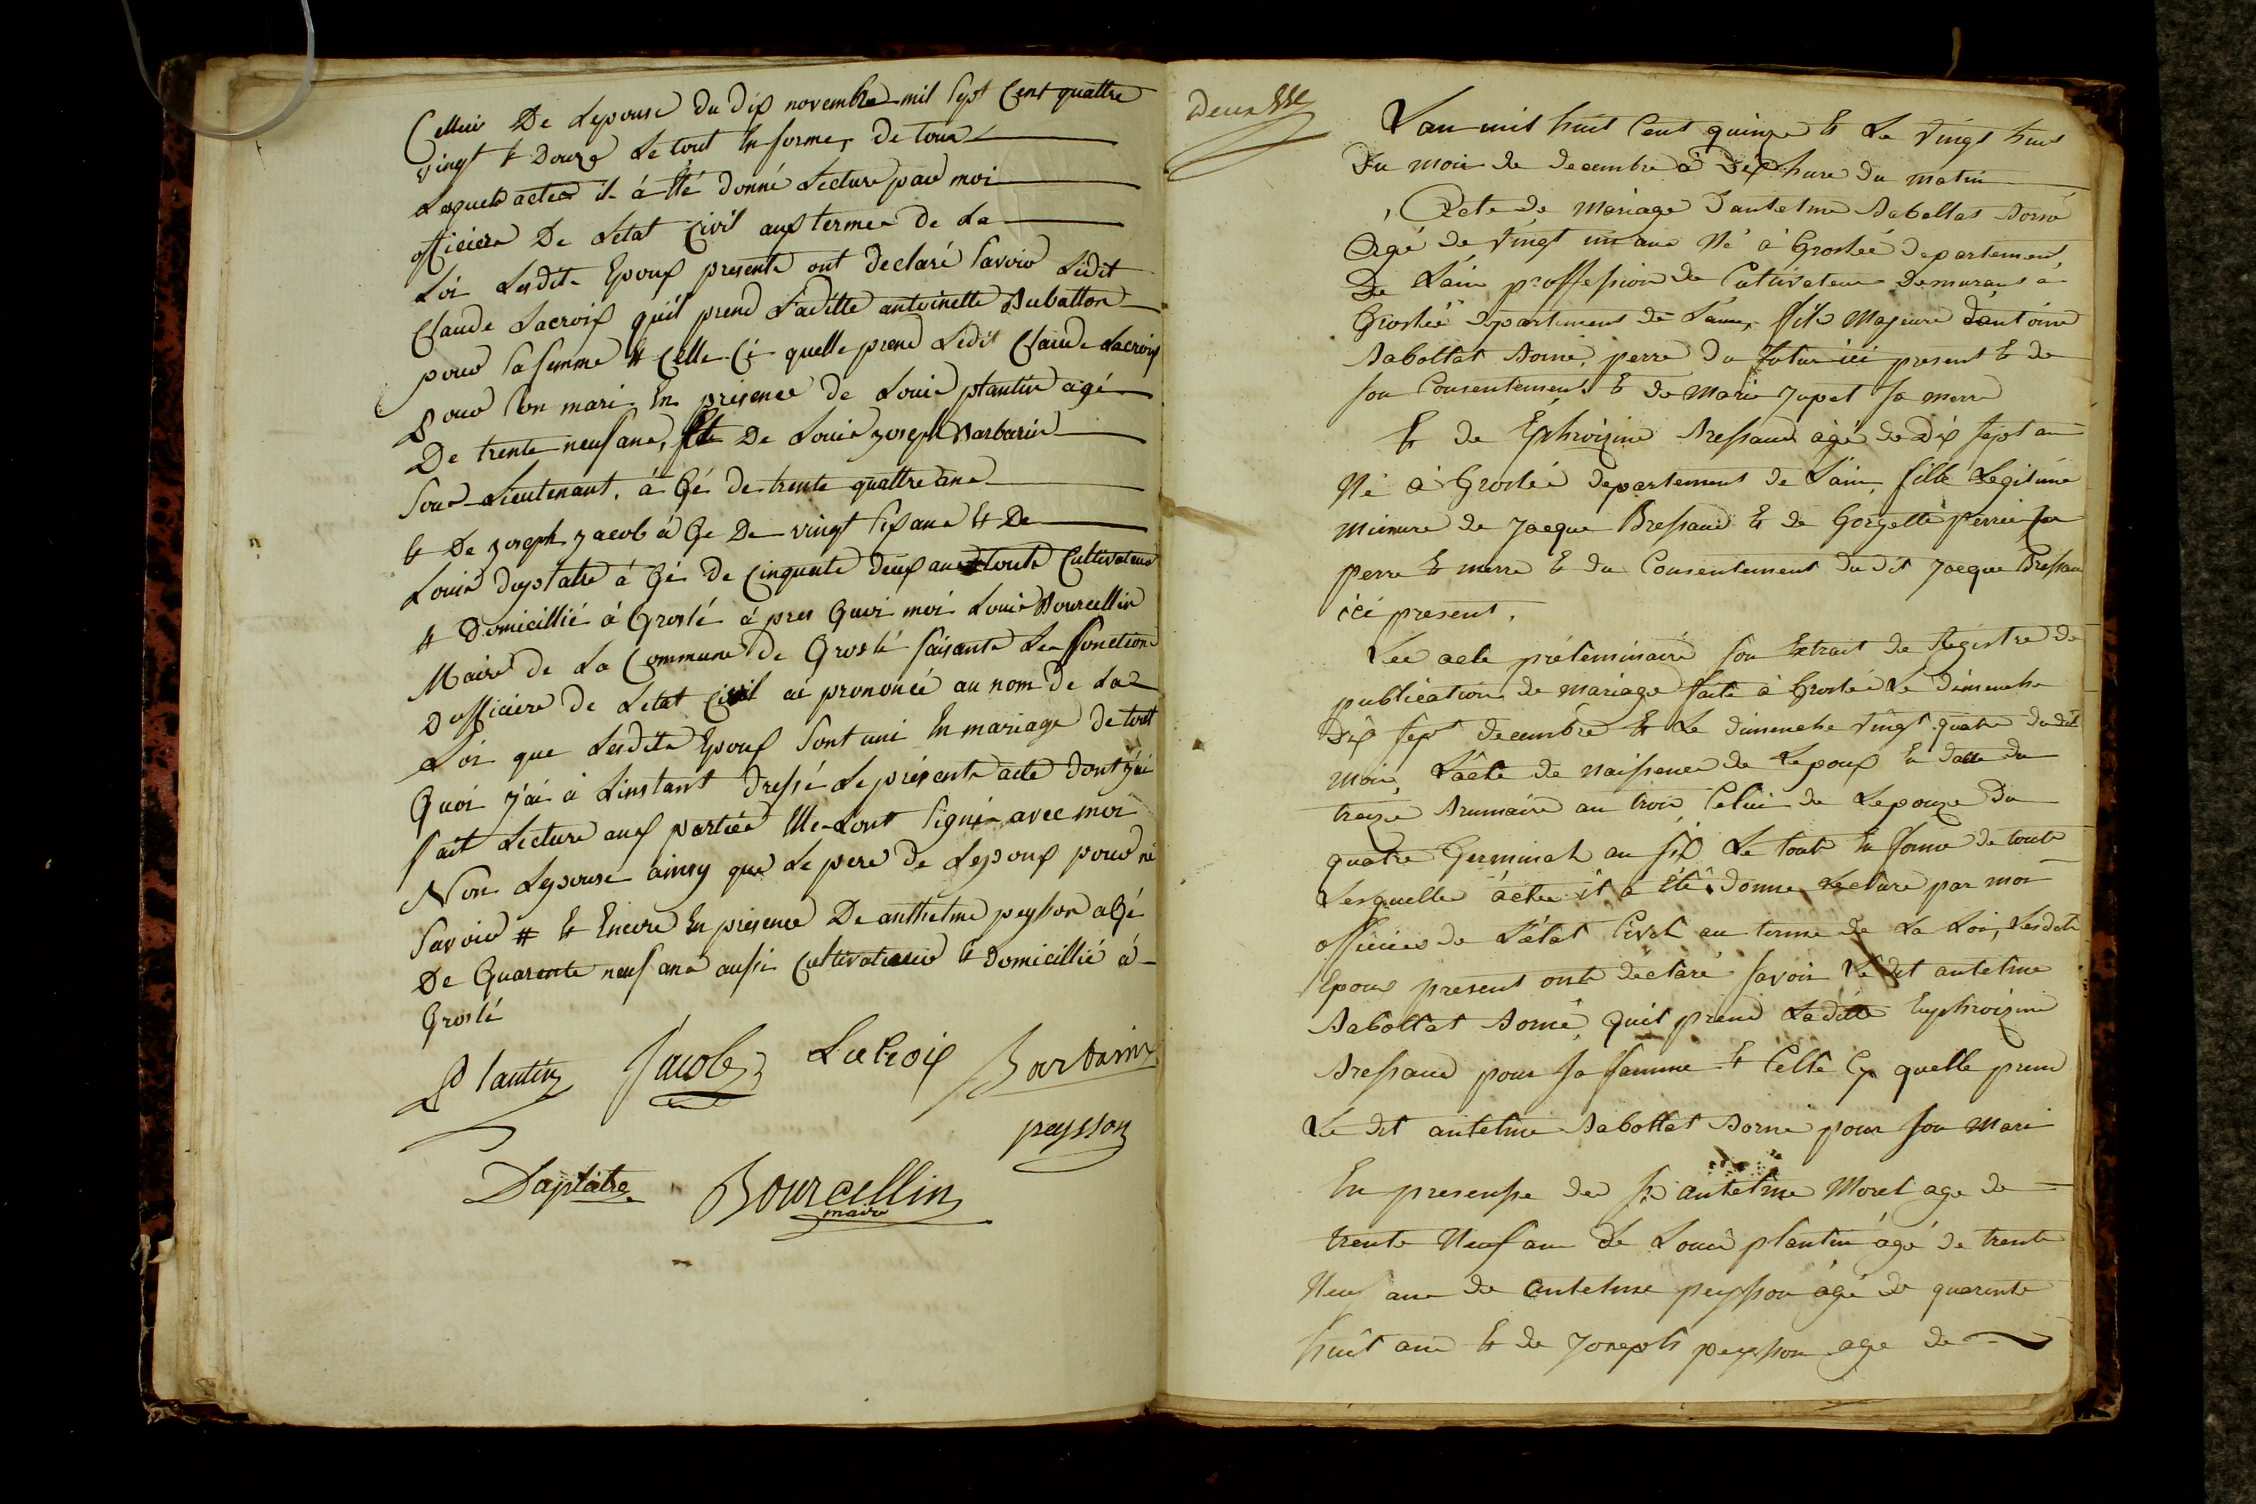 Celluis De Lepouse du dix novembre mil sept Cent quattre
vingt & Douze Le tout En forme, de tous
Lesquels actes il à Eté donné Lecture par moi
officiere De Letat Civil aux termes de La
Loi Lesdits Epoux presents ont declaré savoir Ledit
Claude Lacroix qu'il prend Laditte antoinette Rubatton
pour sa femme & Celle Ci quelle prend Ledit Claude Lacroix
pour son mari En présence de Louis plantin agé
De trente neuf ans, De Louis Joseph Barbarin
sous Lieutenant, à Gé de trente quattre ans
& De Joseph Jacob à Gé De vingt six ans & De
Louis daplatre à Gé de Cinquante deux ans touts Cultivateurs
& Domicillié à Groslé à pres Quoi moi Louis Bourcellin
Maire de La Commune de Groslé faisants Les fonctions
D officiere de Letat Civil ai prononcé au nom de La
Loi que Lesdits Epoux sont uni En mariage de tout
Quoi j'ai à Linstant dressé Le présents acte dont j'ai
fait Lecture aux parties Ille Lont signés avec moi
Non Lepouse ainsy que Le pere de Lepoux pour né
savoir # & Encore En présence De anthelme peysson aGé
De Quarente neuf ans aussi Cultivateur & domicillié à
Groslé
Plantin Jacob LaCroix Barbarin
peysson
Daplatre Bourcellin
maire
Deux
Lan mil huit Cent quinze & Le vingt huit
Du mois de decembre à Dix hure du matin
Acte de Mariage Dantelme Sabattat Borné
Agé de vingt un ans Né à Groslée departement
De Lain proffession de Cultivateur Demurant à
Groslée departement de Lain, fils Majeure dantoine
Sabottat Borné, perre du futur ici present & de
son Consentement & de Marie Jupet sa merre
& de Ephroizine Bressand âgé de Dix sept an
Né à Groslée departement de Lain, fille Legitime
Minure de Jacque Bressand & de Gorgette Perrin ses
perre & merre & du Consentement du dit Jacque Bressan
ici present.
Les acte préléminaire son Extrait de Régistre de
publication de mariage faite à Groslée Le dimenche
Dix sept decembre & Le dimenche vingt quatre dudit
mois, Lâcte de naissence de Lepoux En datte du
treize Brumaire an trois, Celui de Lepouze Du
quatre Germinal an six Le tout En forme de toute
Lesquelle âctes il a été donne Lecture par moi
officier de Létat Civil au terme de La Loi, Lesdit
Epoux present ont déclaré savoir Le dit antelme
Sabottat Borné, quil prend Laditte Euphroizine
Bressand pour sa famme & Celle Cy quelle prend
Le dit antelme Sabottat Borné pour son Mari
En presense de sr antelme Moret age de
trente Neuf ans de Louis plantin âgé de trente
Neuf ans de antelme peysson âgé de quarente
huit ans & de Joseph peysson age de